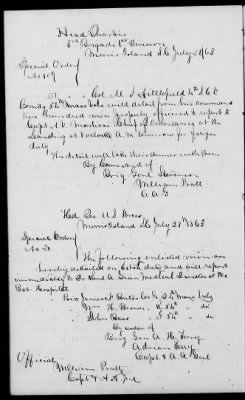 Head Quarters
2nd Brigade 1st Division
Morris Island S.C. July 28 1863
Special Order
No 109
III Col M. S. Littlefield 4th S C
Comdg 54th Mass Vols will detail from his command
two hundred men properly officered to report to
Capt Chief of Ordnance at the
Landing at o'clock A.M. tomorrow for fatigue
duty
The detail will take their dinner with them
By Command of
Brig Genl Stevenson
William Pratt
A.A.G
Hed Qrs U.S. Forces
Morris Island S.C. July 28th 1863
Special Order
No
The following enlisted men are
hereby detailed on extra duty and will report
immediately to Medical Director at the
Post Hospital
Priv Co 54th Mass Vols
" Wm H. Brown " 54th
" 54th " do
By order of
Brig Gen A. H. Terry
Adrian Terry
Capt & A.A. Genl
Official
William Pratt
Capt & A.A. Gnl